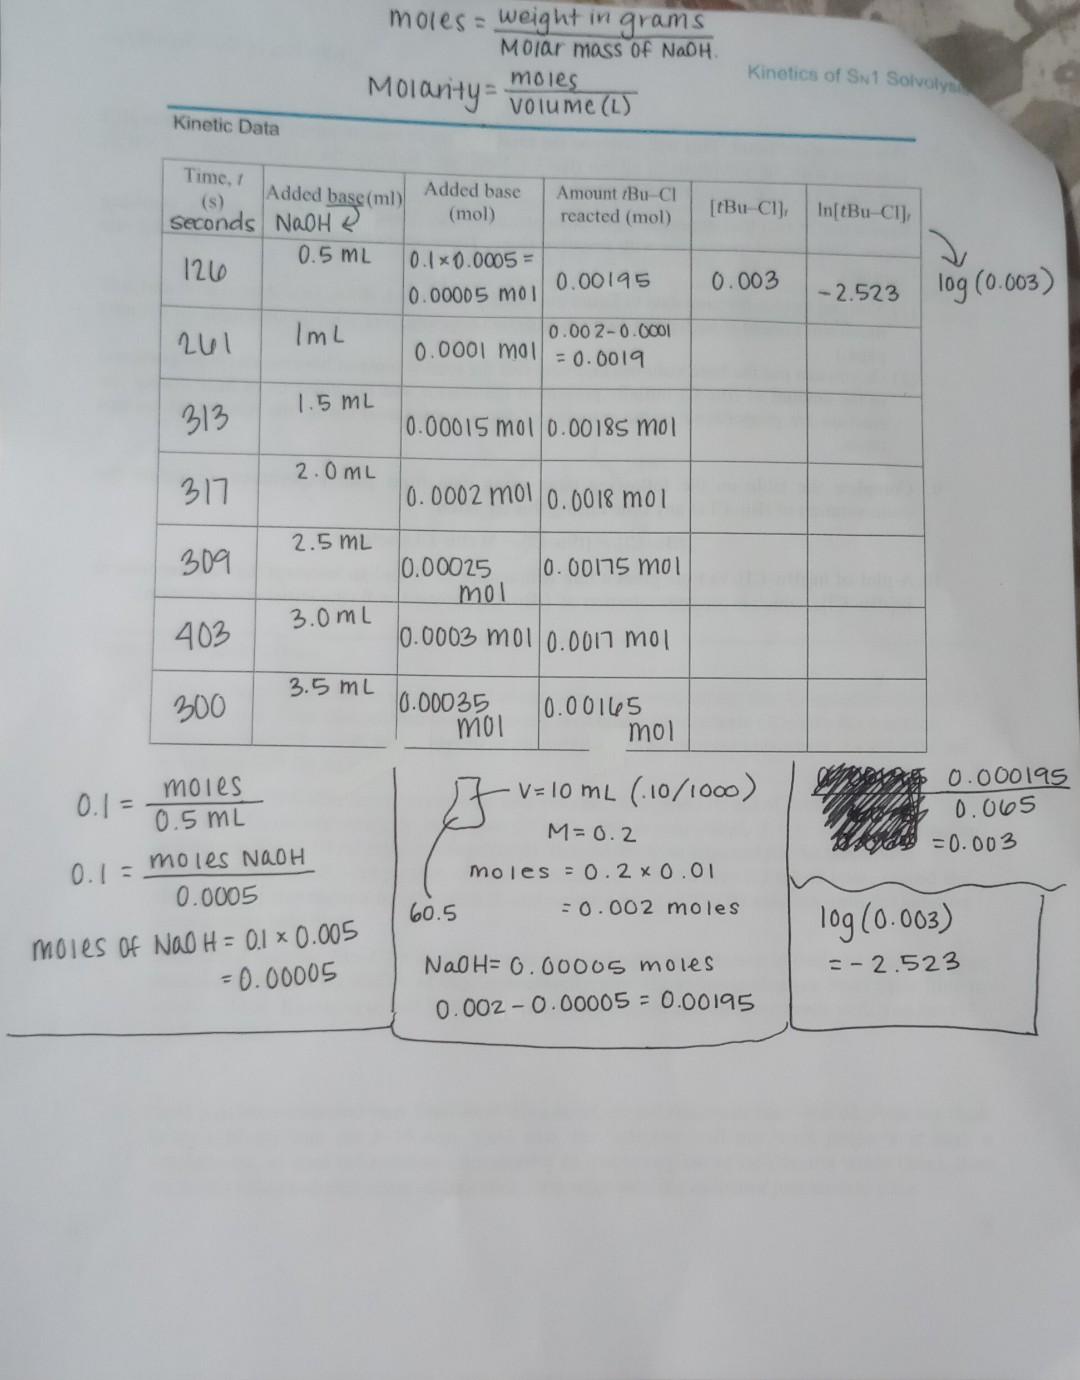 moles = weight in grams
Molar mass of NaOH.
Molarity = moles
volume (L)
Kinetics of SN1 Solvolysis
Kinetic Data
Time, t (s) seconds | Added base(ml) NaOH | Added base (mol) | Amount tBu–Cl reacted (mol) | [tBu–Cl]t | ln[tBu–Cl]t
126 | 0.5 mL | 0.1×0.0005 = 0.00005 mol | 0.00195 | 0.003 | -2.523
log (0.003)
261 | 1mL | 0.0001 mol | 0.002-0.0001 = 0.0019
313 | 1.5 mL | 0.00015 mol | 0.00185 mol
317 | 2.0 mL | 0.0002 mol | 0.0018 mol
309 | 2.5 mL | 0.00025 mol | 0.00175 mol
403 | 3.0 mL | 0.0003 mol | 0.0017 mol
300 | 3.5 mL | 0.00035 mol | 0.00165 mol
0.1 = moles
0.5 mL
0.1 = moles NaOH
0.0005
moles of NaOH = 0.1 x 0.005
= 0.00005
V= 10 mL (.10/1000)
M= 0.2
moles = 0.2 x 0.01
60.5
= 0.002 moles
NaOH= 0.00005 moles
0.002 - 0.00005 = 0.00195
0.000195
0.065
= 0.003
log (0.003)
= - 2.523